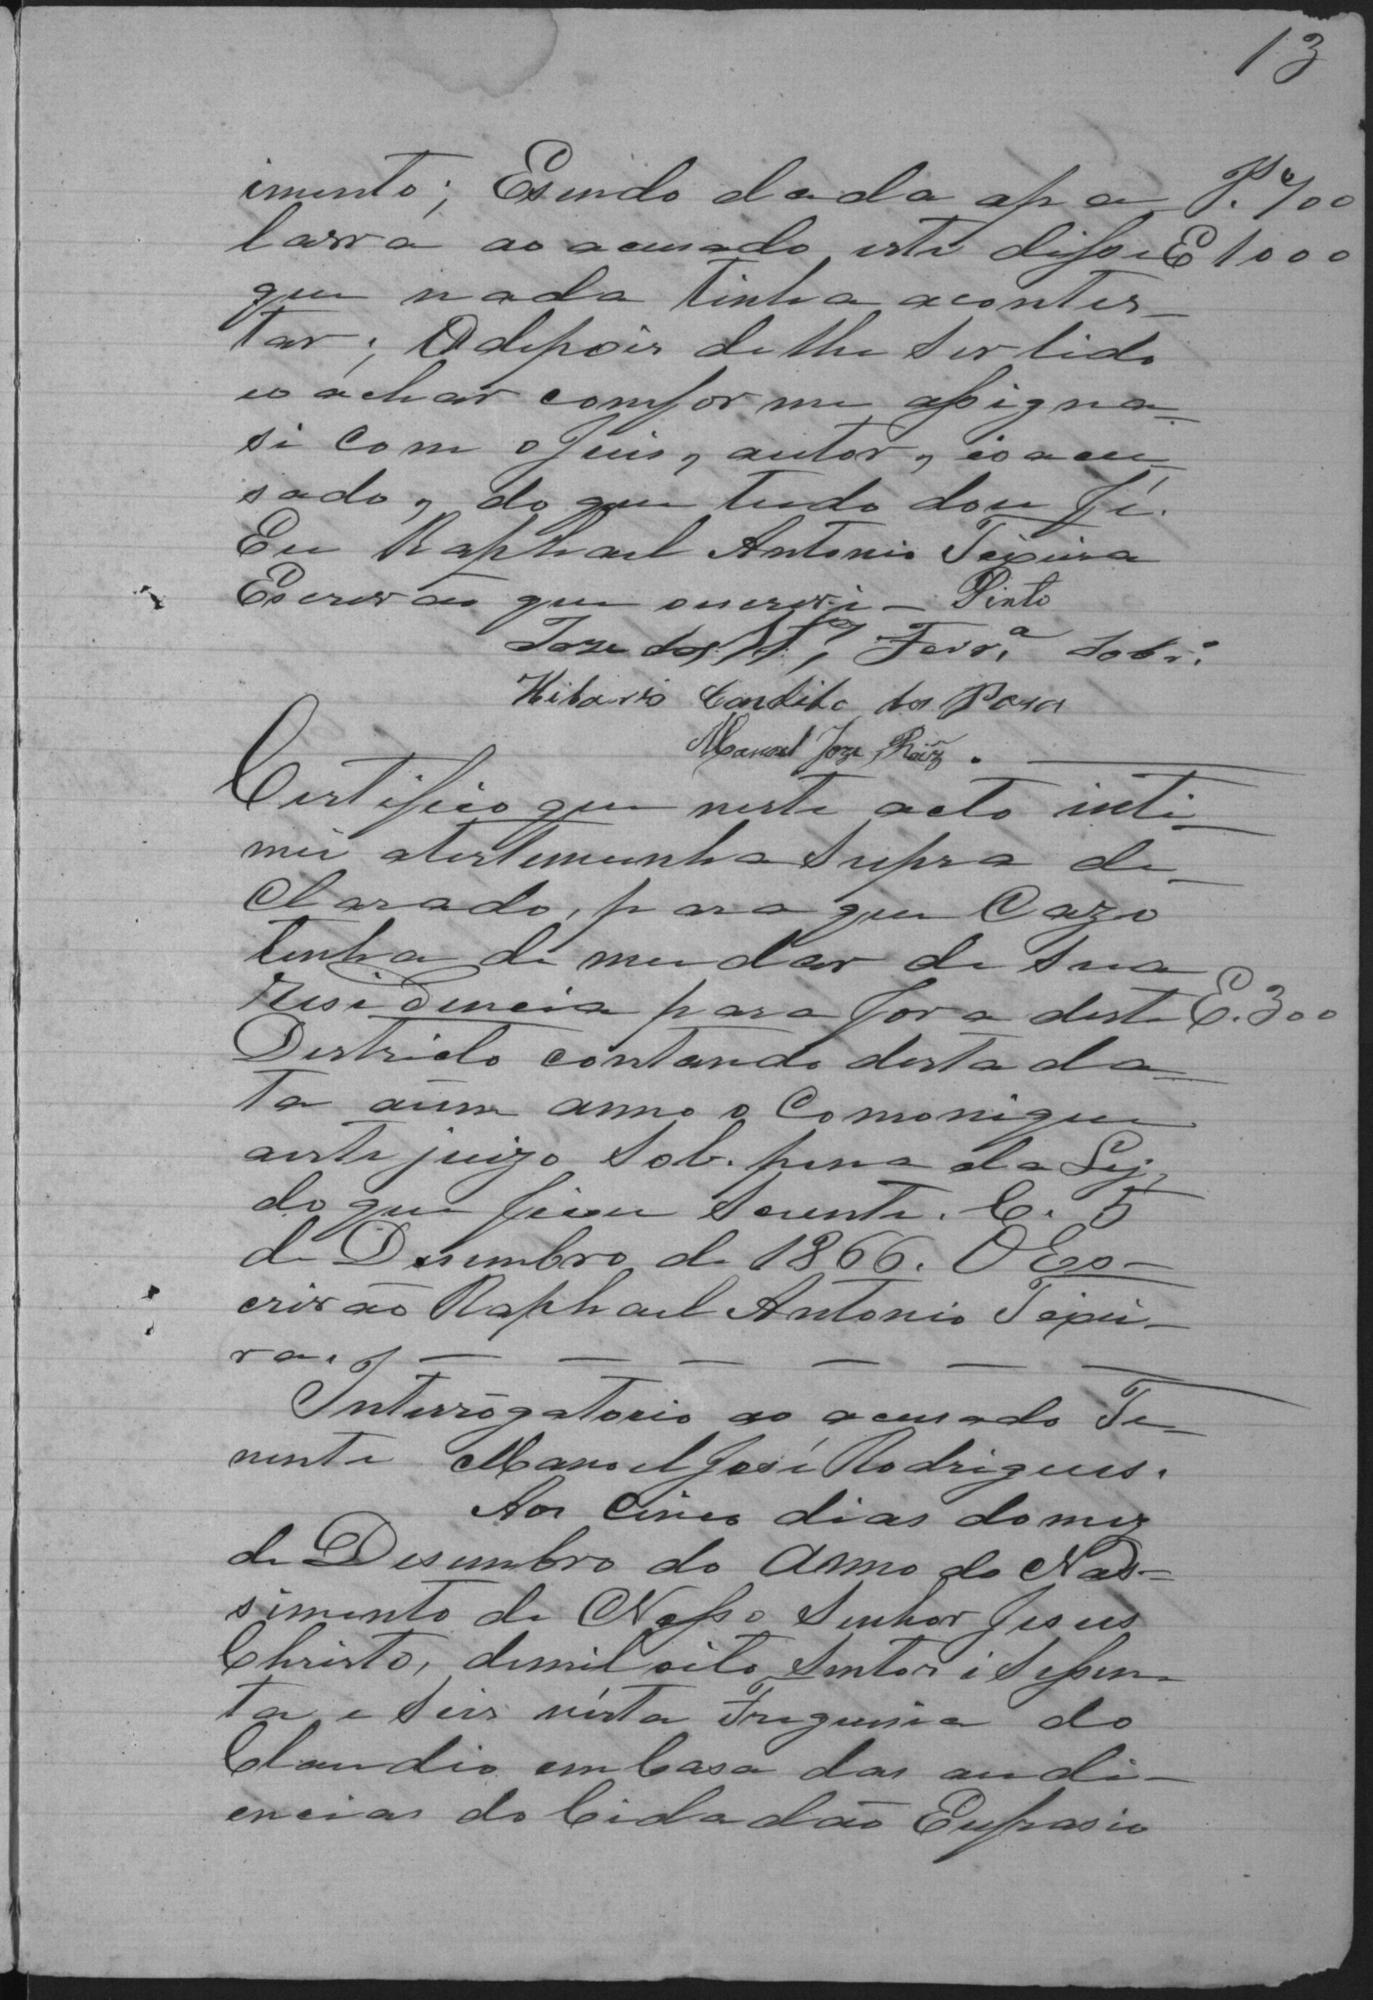 13
imento; Esendo dada apa P. 400
lavra ao acusado este disse E 1000
que nada tinha acontes-
tar; Edepois delhe Ser lido
eo achar comforme assigna-
si com o Juis, autor, eo acu-
sado, do que tudo dou fé.
Eu Raphael Antonio Teixeira
Escrivão que oescrevi - Pinto
Joze dos Ferr.ª Sobr.º
Hilario Candido dos Pasos
Manoel Joze Roiz.
Certifico que neste acto inti-
mei atestemunha Supra de-
Clarado, para que Cazo
tenha de mudar de Sua
residencia para fora deste E. 300
Destricto contando desta da-
ta aum anno o Comonique
aeste juizo Sob. pena da Lej,
do que ficou Sciente. C. 5
de Desembro de 1866. O Es-
crivão Raphael Antonio Teixei-
ra.
Interrogatorio ao acusado Te-
nente Manoel José Rodrigues.
Aos Cinco dias domez
de Desembro do Anno do Nas-
simento de Nosso Senhor Jesus
Christo, demil oito Sentos i Sessen-
ta e Seis nésta Freguisia do
Claudio em Casa das audi-
encias do Cidadão Eufrasio